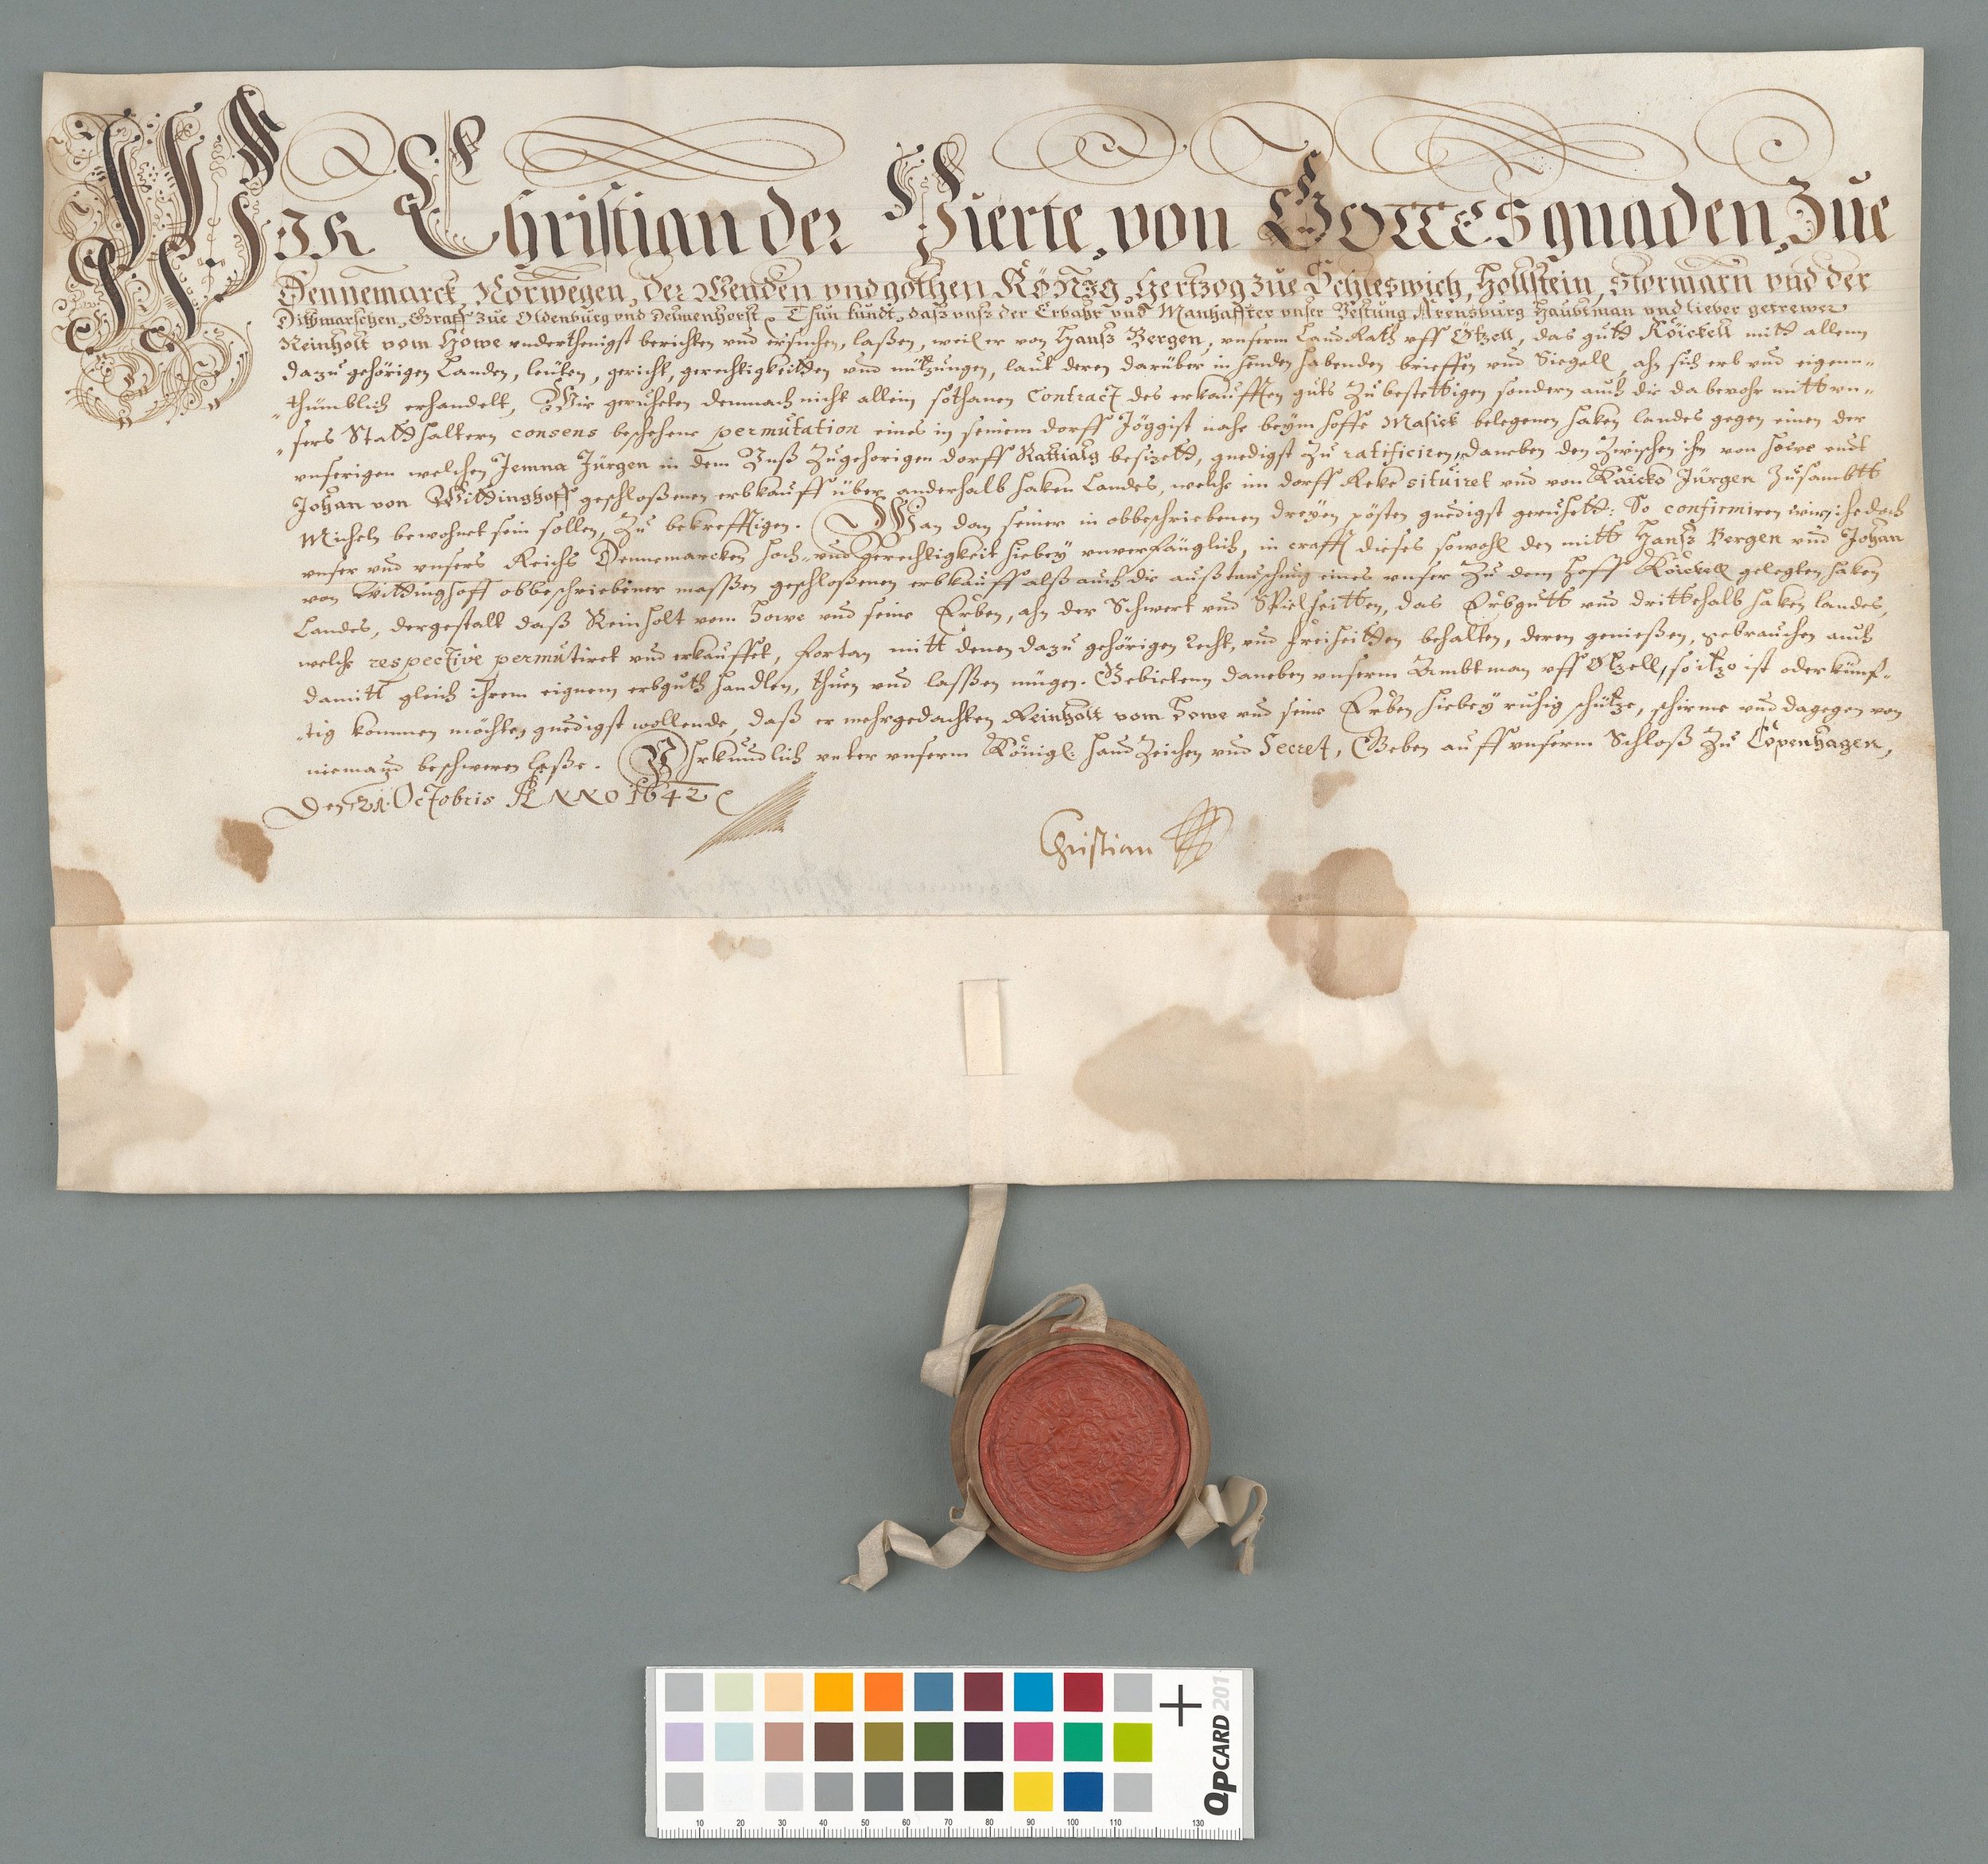 WIR Christian der Vierte, von GOTTES gnaden, Zue
Dennemarck, Norwegen, der Wenden vnd gothen KÖNIg, Hertzog zue Schleswich, Hollstein, Stormarn vnd der
Dithmarschen, Graff zue Oldenburg vnd Delmenhorst, Thun kundt, daß vnß der Erbahr vnd Manhaffter vnser Vestung Arensburg Haubtman vnd lieber getrewer
Reinholt vom Howe vnderthenigst berichten vnd ersuchen laßen, weil er von Hanß Bergen, vnserm Land Rath vff Ötzell, das gutt Köickell mitt allem
dazu gehörigen Landen, leuten, gericht, gerechtigkeitten vnd nützungen, laut deren darüber in henden habenden brieffen vnd Siegell, ahn sich erb vnd eigen-
thümblich erhandelt, Wir geruheten demnach nicht allein sothanen Contract des erkaufften guts Zu bestettigen sondern auch die dabevohr mitt vn-
sers Statthaltern consens beschehene permutation eines in seinem dorff Jöggist nahe beym hoffe Masick belegenen haken landes gegen einen der
vnserigen welchen Jemna Jürgen in dem Vnß Zugehorigen dorff besizett, gnedigst Zu ratificiren, daneben den Zwischen ihm von Howe vndt
Johan von Vittinghoff geschloßenen erbkauff über anderhalb haken Landes, welche im dorff Reke situiret vnd von Jürgen Zusambtt
Micheln bewohnet sein sollen, Zu bekrefftigen. Wan dan seiner in obbeschriebenen dreyen pösten gnedigst geruhett: So confirmiren wir, ihedoch
vnser vnd vnsers Reichs Dennemarcken hoch- vnd gerechtigkeit hiebey vnverfänglich, in crafft dieses sowohl den mitt Hanß Bergen vnd Johan
von Vittinghoff obbeschriebener massen geschloßenen erbkauff alß auch die außtauschung eines vnser Zu dem Hoff Köickell gelegten haken
Landes, dergestalt daß Reinholt vom Howe vnd seine Erben, ahn der Schwert vnd Spielseitten, das Erbgutt vnd drittehalb haken landes,
welche respective permutiret vnd erkauffet, fortan mitt denen dazu gehörigen recht, vnd freiheitten behalten, deren genießen, gebrauchen auch
damitt gleich ihrem eignem erbguth handlen, thuen vnd lassen mügen. Gebietenn daneben vnserm Ambtman vff Ötzell, so itzo ist oder künf-
tig kommen möchte, gnedigst wollende, daß er mehrgedachten Reinholt vom Howe vnd seine Erben hiebey ruhig schütze, schirme vnd dagegen von
niemand beschweren laße. Vhrkundlich vnter vnserm Königl: handZeichen vnd Secret, Geben auff vnserm Schloß Zu Copenhagen,
Den 21. Octobris ANNO 1642
Christian
10 20 30 40 50 60 70 80 90 100 110 130
QPCARD 201